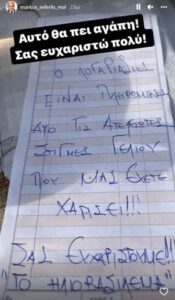 markos_seferlis_real 23ω
Αυτό θα πει αγάπη!
Σας ευχαριστώ πολύ!
Ο ΛΟΓΑΡΙΑΣΜΟΣ
ΕΙΝΑΙ ΠΛΗΡΩΜΕΝΟΣ
ΑΠΟ ΤΙΣ ΑΤΕΛΕΙΩΤΕΣ
ΣΤΙΓΜΕΣ ΓΕΛΙΟΥ
ΠΟΥ ΜΑΣ ΕΧΕΤΕ
ΧΑΡΙΣΕΙ!!!
ΣΑΣ ΕΥΧΑΡΙΣΤΟΥΜΕ!!
"ΤΟ ΗΛΙΟΒΑΣΙΛΕΜΑ"